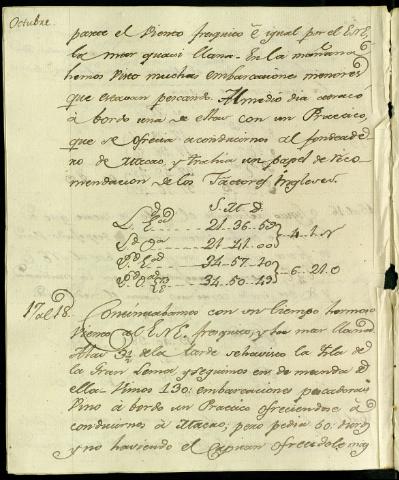 Octubre.
parece el Viento fresquico è igual por el ENE,
la mar quasi llana. En la mañana
hemos visto mucha embarcaciones menores
que estavan pescando. Al medio dia atracó
à bordo una de ellas con un Practico,
que se ofrecia a conducirnos al fondeade-
ro de Macao, y trahia un papel de reco-
mendacion de los Factores Ingleses.
S. M. D.
L. Eda 21..36..53
Sda Oa 21..41..00 } 4..1..N
34..57..10
34..50..49 } 6..21..O
17 al 18.
Continuabamos con un tiempo hermoso
Viento al ENE. fresquito, y la mar llana
A las 3½ de la tarde se haviso la Isla de
la Gran Lema, y seguimos en demanda de
ella. Vimos 130: embarcaciones pescadoras
Vino à bordo un Practico ofreciendose à
conducirnos à Macao, pero pedia 50: duros
y no haviendo el Capitan ofrecidole mas